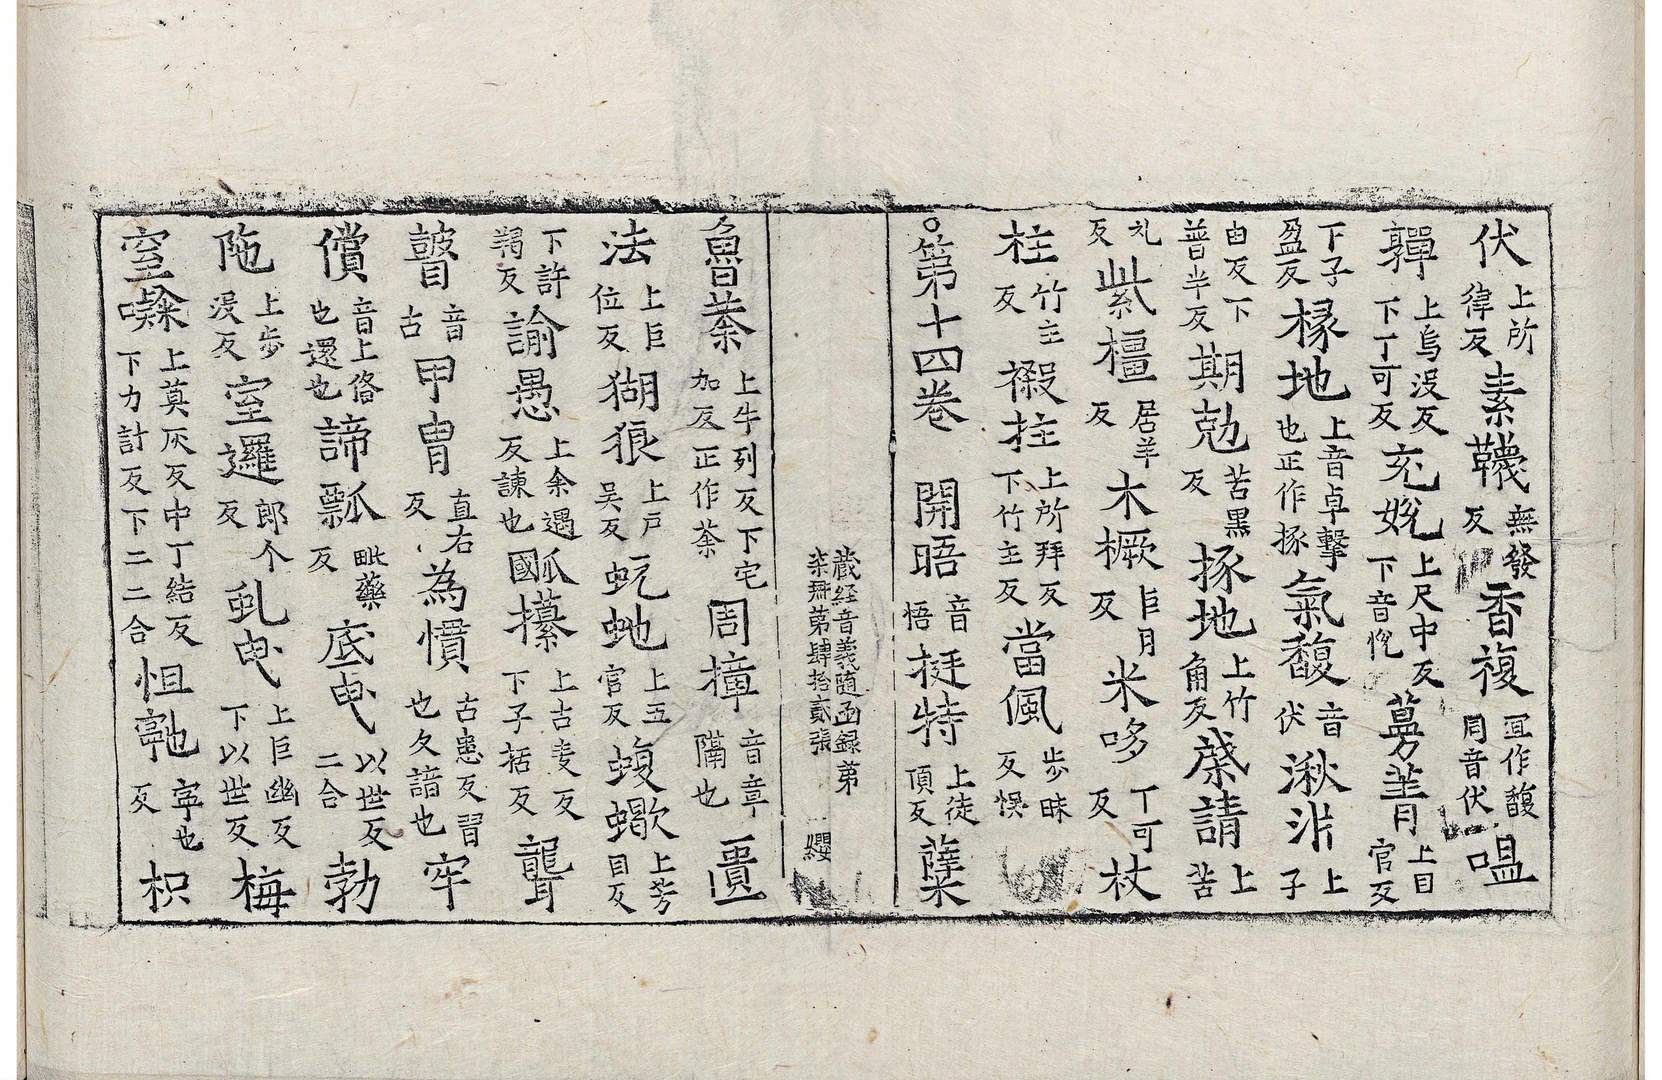 伏上所律反素韈無發反香複宜作馥同音伏嗢
上烏没反下丁可反充婗上尺中反下音悦菁上目官反
下子盈反椽地上音卓擊也正作㧻氣馥音伏湫泮上子
由反下普半反期勉苦黒反㧻地上竹角反請上苦
礼反紫橿居羊反木橛巨月反米哆丁可反杖
柱竹主反拄上所拜反下竹主反當佩步昧反悞
○第十四卷 開晤音悟挺特上徒頂反蘖
藏經音義隨函録第柒冊第肆拾貳張 纓
魯荼上牛列反下宅加反正作荼周㨄音章隔也匱
法上巨位反猢狼上戶吴反蚖虵上五官反蝮蠍上芳目反
下許羯反諭愚上余遇反諫也國㼌㩎上古麦反下子括反聾
瞽音古甲冑直右反為慣古患反習也久諳也牢
償音上俻也還也諦瓢毗藥反底曳以世反二合勃
陁上步没反室邏郎个反虬曳上巨幽反下以世反梅
室㘑上莫灰反中丁結反下力計反下二二合怛寧也反枳